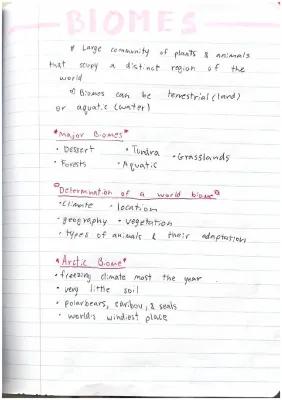 BIOMES
Large community of plants & animals
that ocupy a distinct region of the
world
Biomes can be terrestrial (land)
or aquatic (water)
*Major Biomes*
• Dessert • Tundra • Grasslands
• Forests • Aquatic
Determination of a world biome
• Climate • location
• geography • vegetation
• types of animals & their adaptation
*Arctic Biome*
• freezing climate most the year
• very little soil
• polarbears, caribou, & seals
• world's windiest place